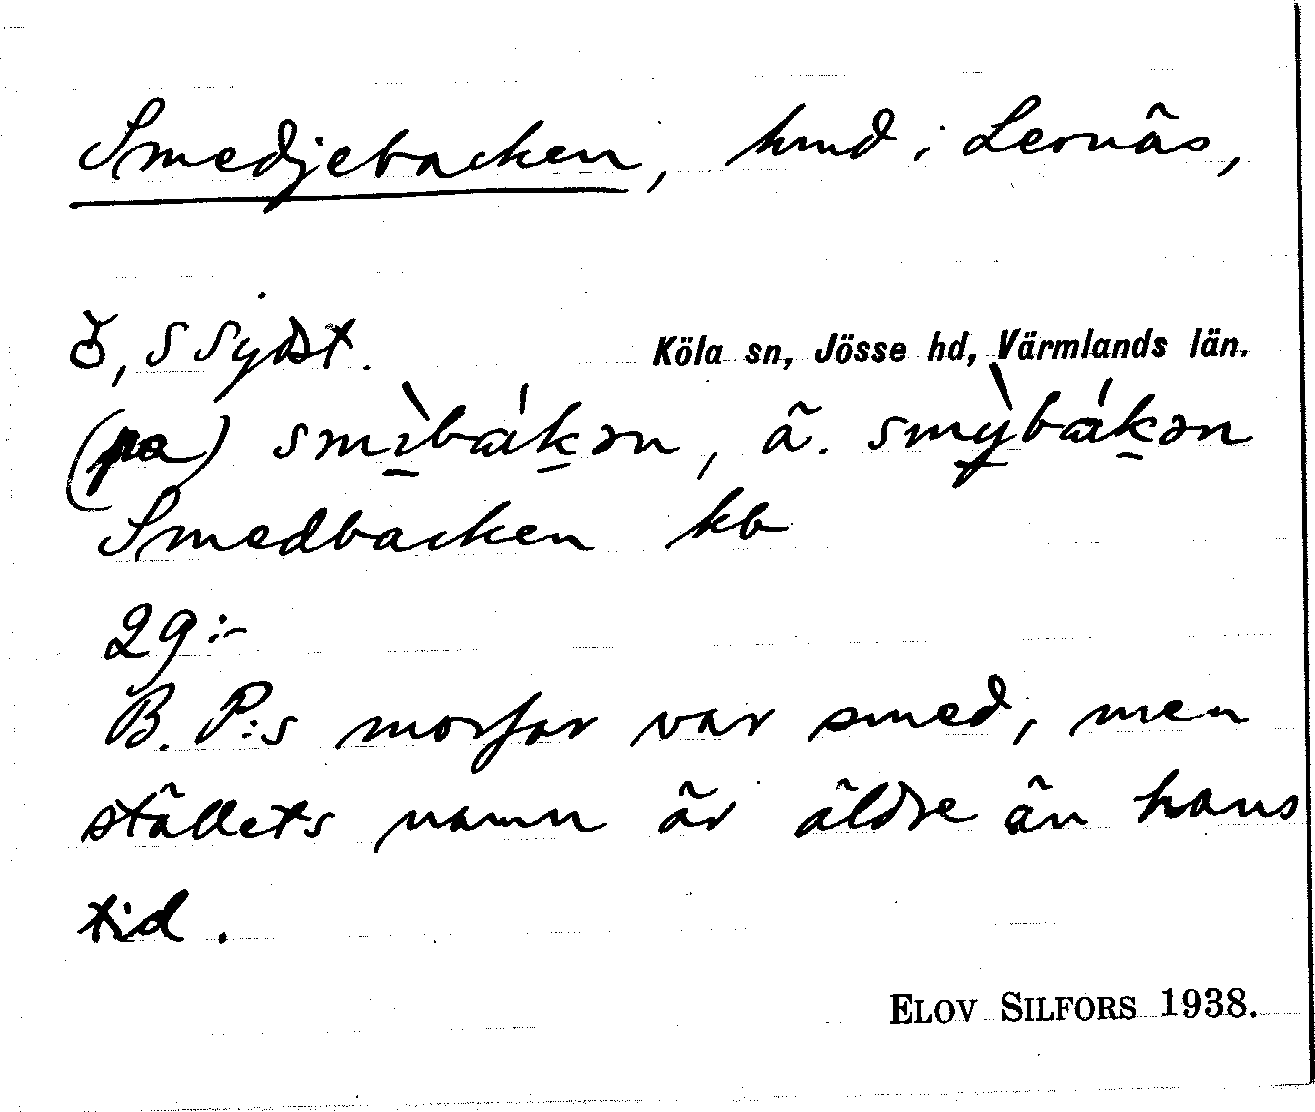 Smedjebacken, hmd i Lernäs,
ǒ, S Sydöst. Köla sn, Jösse hd, Värmlands län.
(pa) smìbákən, ä. smỳbákən
Smedbacken kb
29:-
B. P:s morfar var smed, men
ställets namn är äldre än hans
tid.
ELOV SILFORS 1938.